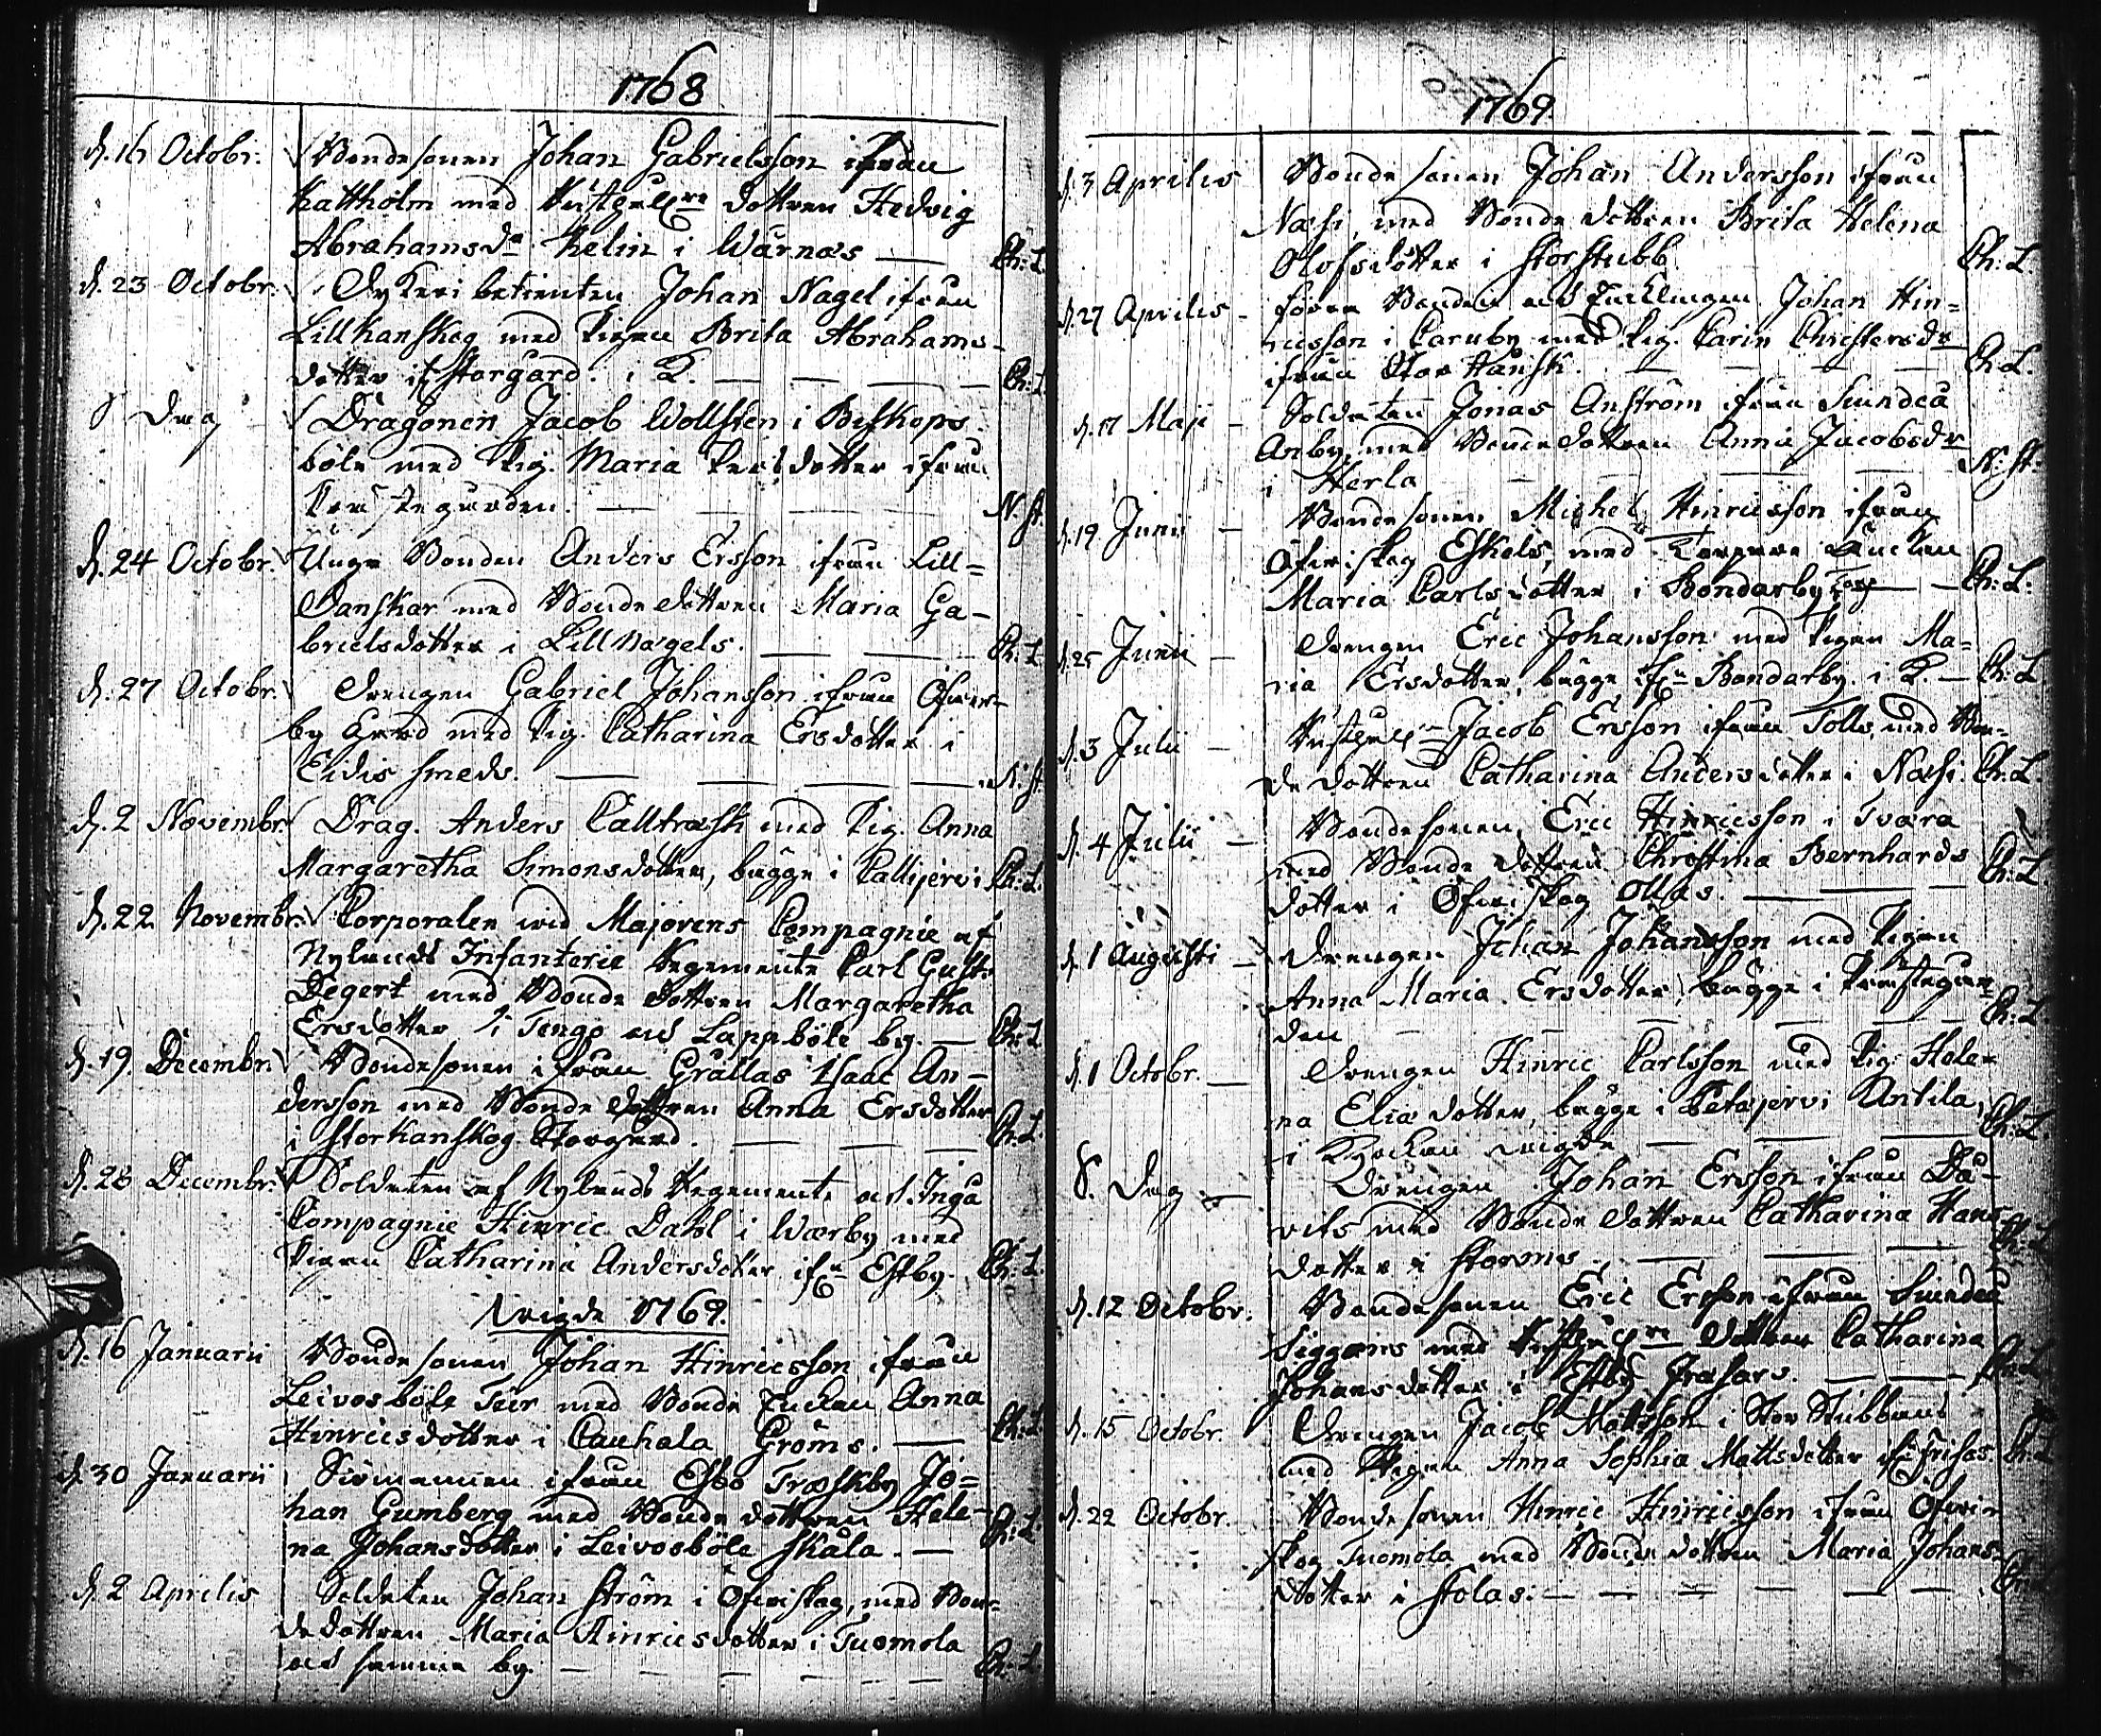 1768
d. 16 Octobr. Bondesonen Johan Gabrielsson ifrån
Kattholm med Rustgull:re dottren Hedvig
Abrahamsdr Thelin i Wärnäs Ch: L.
d. 23 Octobr. betienten Johan Nagel ifrån
Lillkanskog med Pigan Brita Abrahams-
dotter if Storgård. i K. Ch: L
d Dag Dragonen Jacob Wollsten i Biskops
böle med Pig. Maria dotter ifrån
Prästegården. N. st.
d. 24 Octobr. Unge Bonden Anders Ersson ifrån Lill=
Danskar med Bonde dottren Maria Ga-
brielsdotter i Lill Bagels. Ch: L
d. 27 Octobr. Drengen Gabriel Johansson ifrån Öfver-
by Gård med Pig. Catharina Ersdotter i
Eidis smeds. N: st
d. 2 Novembr. Drag. Anders Calltræsk med Pig. Anna
Margaretha Simonsdotter, bägge i Callijervi Ch: L.
d. 22 Novembr. Corporalen wid Majorens Compagnie af
Nylands Infanterie Regemente Carl Gust:
Degert med Bonde dottren Margaretha
Ersdotter i Tengo och Lappböle by. Ch: L
d. 19. Decembr. Bondesonen ifrån Grällas Isaac An-
dersson med Bonde dottren Anna Ersdotter
i Storkanskog Storgård. Ch: L.
d. 28 Decembr. Soldaten af Nylands Regemente och Inga
Compagnie Hinric Dahl i Wärby med
Pigan Catharina Andersdotter ifrn Estby. Ch: L.
Wigde 1769.
d. 16 Januarii Bondesonen Johan Hinricsson ifrån
Leivosböle Teir med Bonde Enckan Anna
Hinricsdotter i Cauhala Gröms. Ch: L
d. 30 Januarii ifrån Esbo Træskby Jo=
han Gumberg med Bonde dottren Hele-
na Johansdotter i Leivosböle Skåla. Ch: L
d. 2 Aprilis Soldaten Johan Ström i Öfvriskog, med Bon-
de dottren Maria Hinricsdotter i Tuomola
och samma by. Ch: L.
1769
d. 3 Aprilis Bonde sonen Johan Andersson ifrån
Næsi, med Bonde dottren Brita Helena
Olofsdotter i Storstubb Ch: L.
d. 27 Aprilis Bonden och Enklingen Johan Hin=
ricsson i Caruby med Pig. Carin Christersdr
ifrån Stor Hansk. Ch: L.
d. 17 Maji Soldaten Jonas Anström ifrån Sundeå
Anby, med Bonde dottren Anna Jacobsdr
i Herla N: st.
d. 19 Junii Bondesonen Michel Hinricsson ifrån
Öfvriskog Eskols, med Enckan
Maria Carlsdotter i Bondarby Torp Ch: L.
d. 25 Junii Drengen Eric Johansson med Pigan Ma=
ria Ersdotter, bägge ifrn Bondarby. i K. Ch: L
d. 3 Julii Rustgull:n Jacob Ersson ifrån Tolls, med Bon-
de dottren Catharina Andersdotter i Næsi. Ch: L.
d. 4 Julii Bondesonen, Eric Hinricsson i Tvära
med Bonde dottren Christina Bernhards
dotter i Öfvriskog Ollas. Ch: L.
d. 1 Augusti Drengen Johan Johansson med Pigan
Anna Maria Ersdotter, bägge i Prästegår
den Ch: L.
d. 1 Octobr. Drengen Hinric Carlsson med Pig. Hele-
na Eliædotter, bägge i Petajervi Antila,
i Kyrckan wigde Ch: L.
d. Dag Drengen Johan Ersson ifrån Da-
vits med Bonde dottren Catharina Hans-
dotter i Storms Ch: L
d. 12 Octobr. Bondesonen Eric Ersson ifrån Sundeå
Siggans med Rustgull:re dottren Catharina
Johansdotter i Estby Frasars. Ch: L
d. 15 Octobr. Drengen Jacob Mattsson i Stor Stubbans
med Pigan Anna Sophia Mattsdotter ifr Frisas. Ch: L
d. 22 Octobr. Bonde sonen Hinric Hinricsson ifrån Öfvri-
skog Tuomola med Bonde dottren Maria Johans-
dotter i Stolas: Ch: L